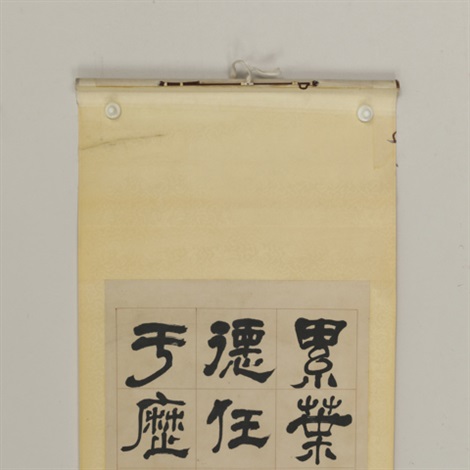 累葉
德任
于歷